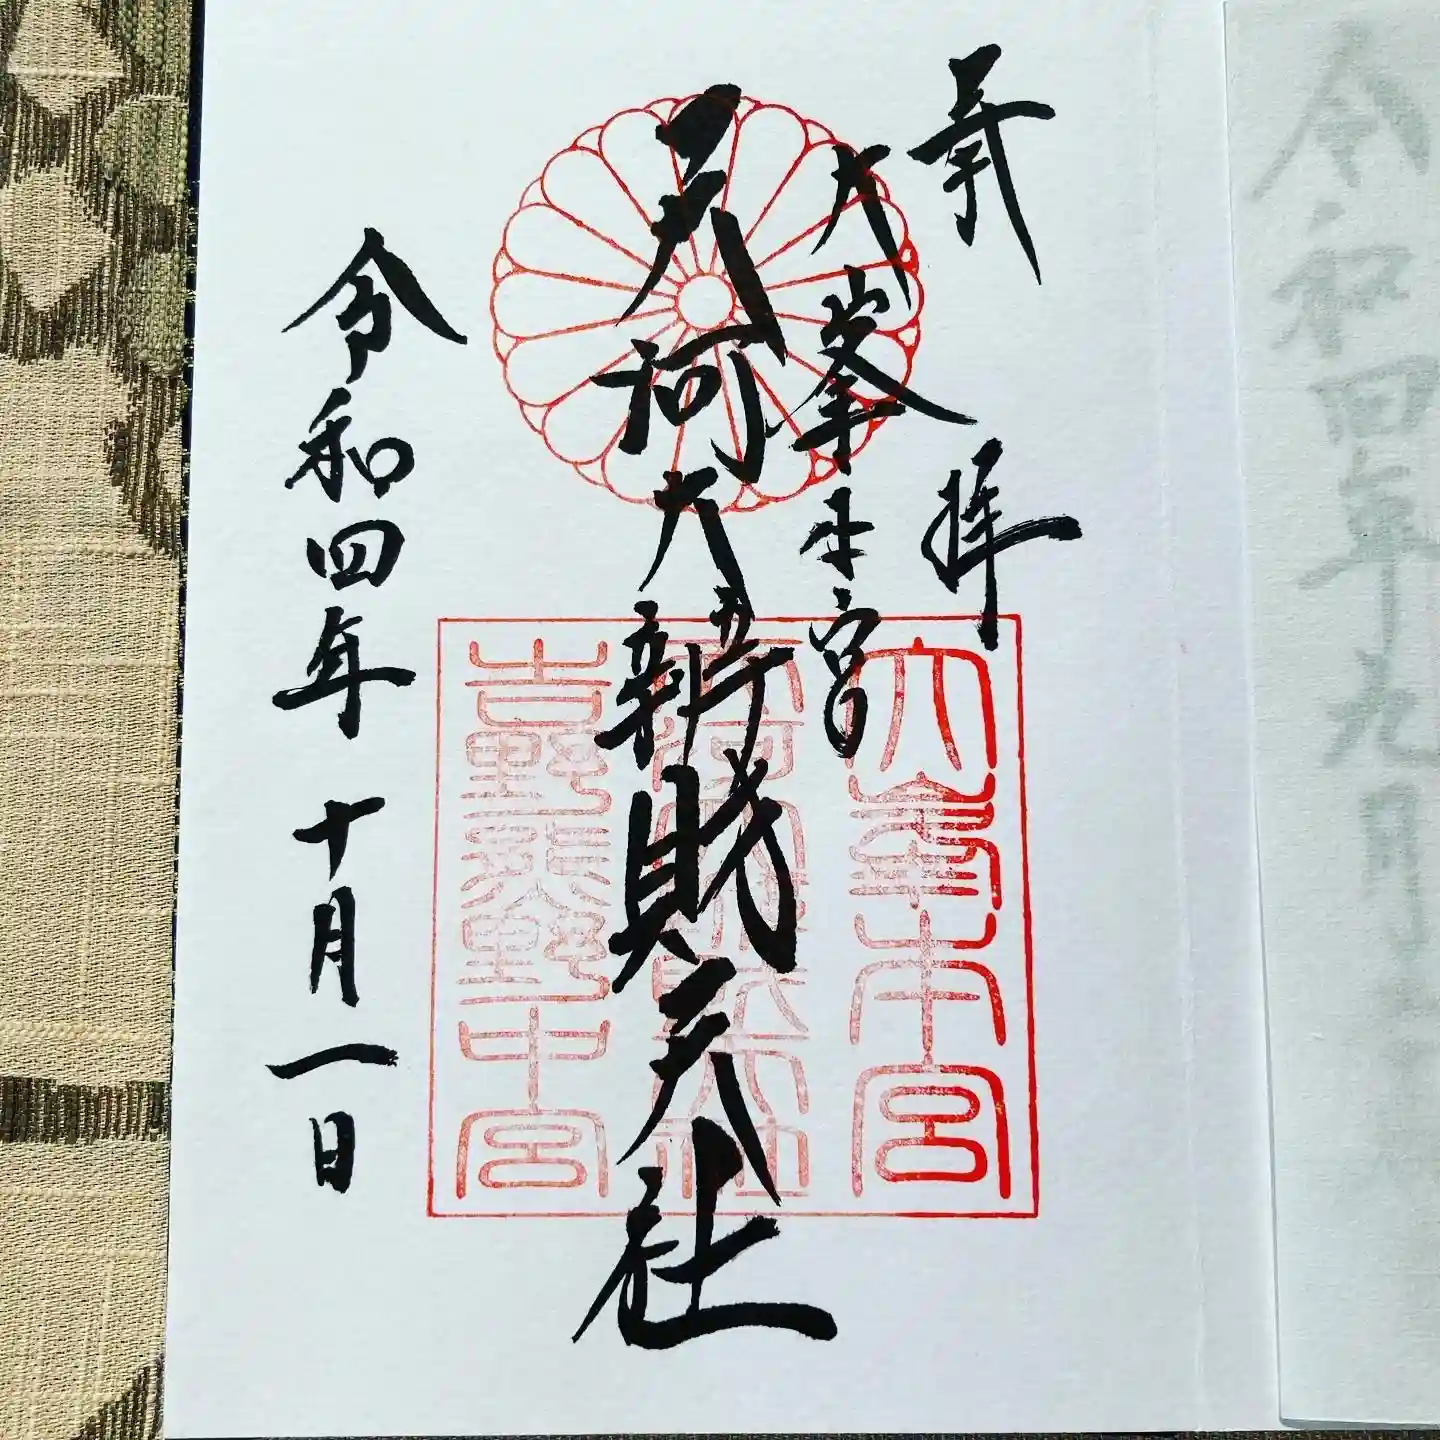 令和四年九月
奉拝
大峯本宮
天河大辨財天社
令和四年十月一日
大峯本宮
吉野熊野中宮